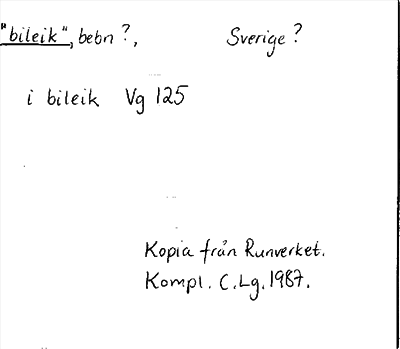 "bileik", bebn?, Sverige?
i bileik Vg 125
Kopia från Runverket.
Kompl. C.Lg. 1987.